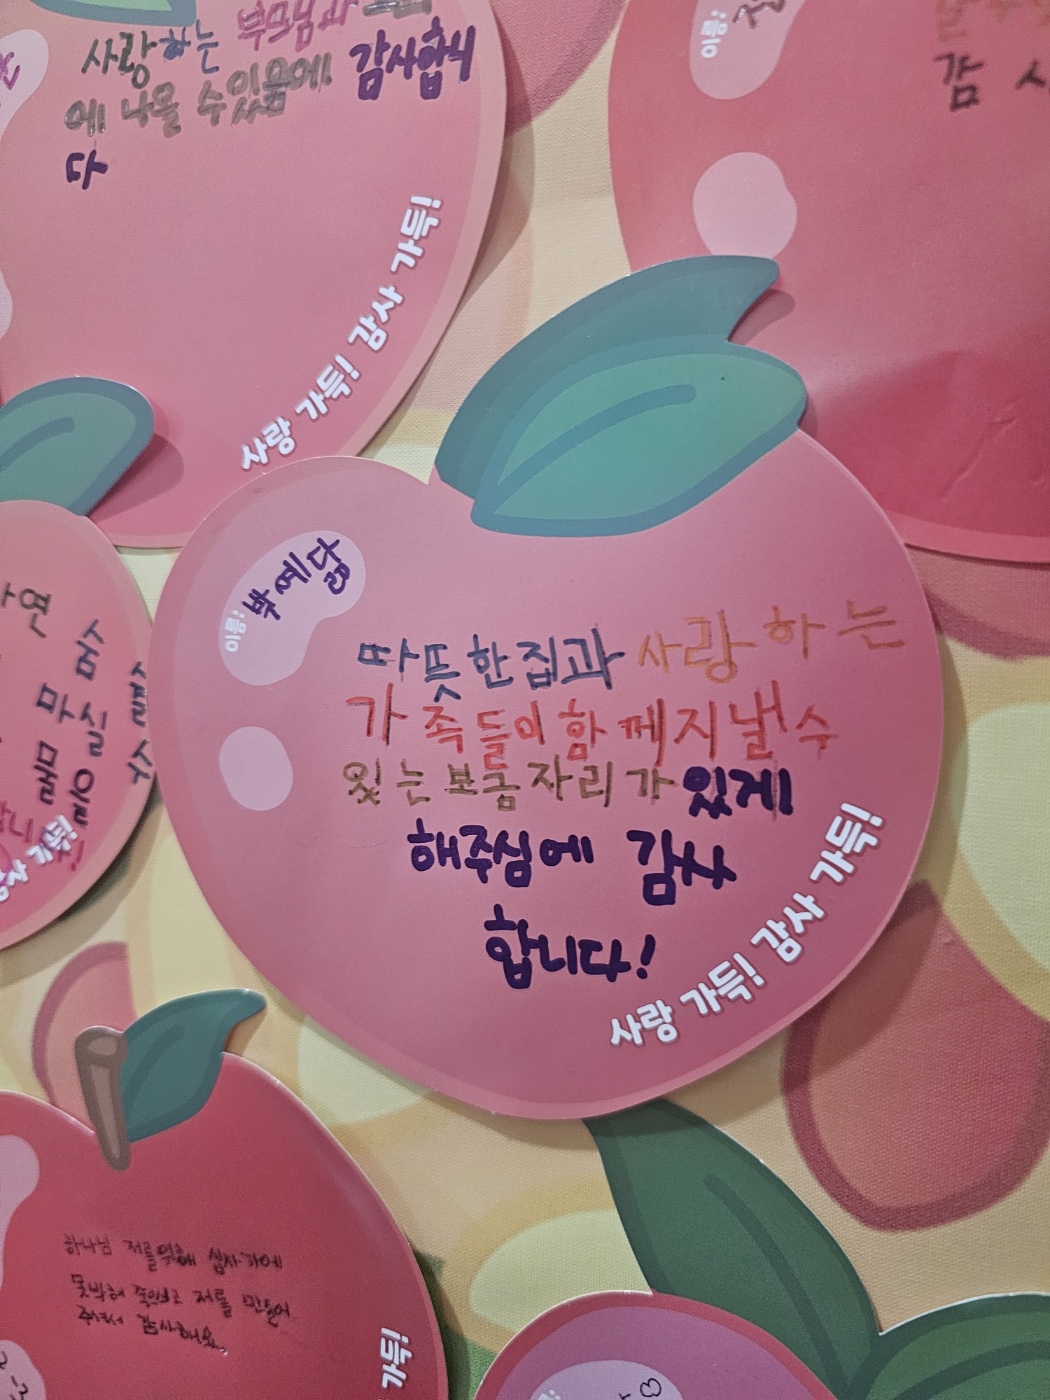 사랑하는 부모님과
에 나올 수 있음에 감사합니
다
사랑 가득! 감사 가득!
이름:
감 사
이름: 박예닮
따뜻한 집과 사랑하는
가족들이 함께 지낼 수
있는 보금자리가 있게
해주심에 감사
합니다!
사랑 가득! 감사 가득!
연
숨
마실
물을
수
감사 가득!
하나님 저를 위해 십자가에
못박혀 죽으시고 저를 만들어
주셔서 감사해요
가득!
2-3